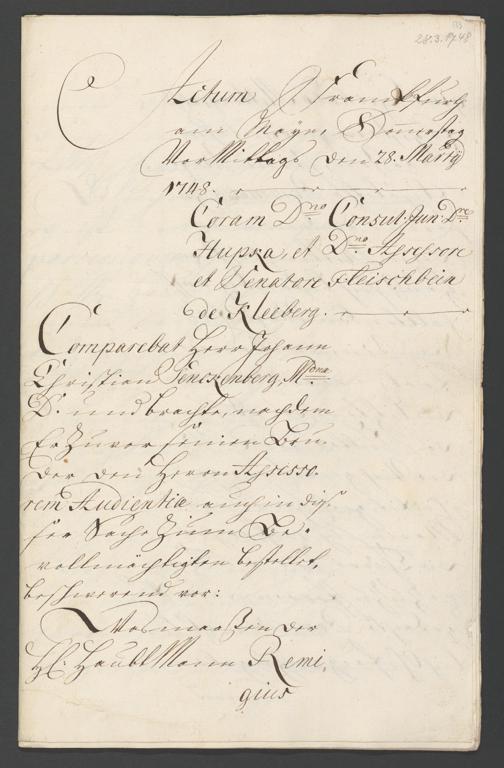 28.3.1748
Actum Franckfurth
am Mayn, Donnerstag
Vormittags den 28. Martij
1748.
Coram Dno Consul. Jun. Dre
Hupka, et Dno Assessore
et Senatore Fleischbein
de Kleeberg.
Comparebat Herr Johann
Christian Senckenberg, Med.
D. und brachte, nachdem
Er zuvor seinen Bru-
der den Herrn Assesso-
rem Audientiæ auch in die-
ser Sache zum Be-
vollmächtigten bestellet,
beschwerend vor:
Wasmaaßen der
H. Haubt Mann Remi-
gius